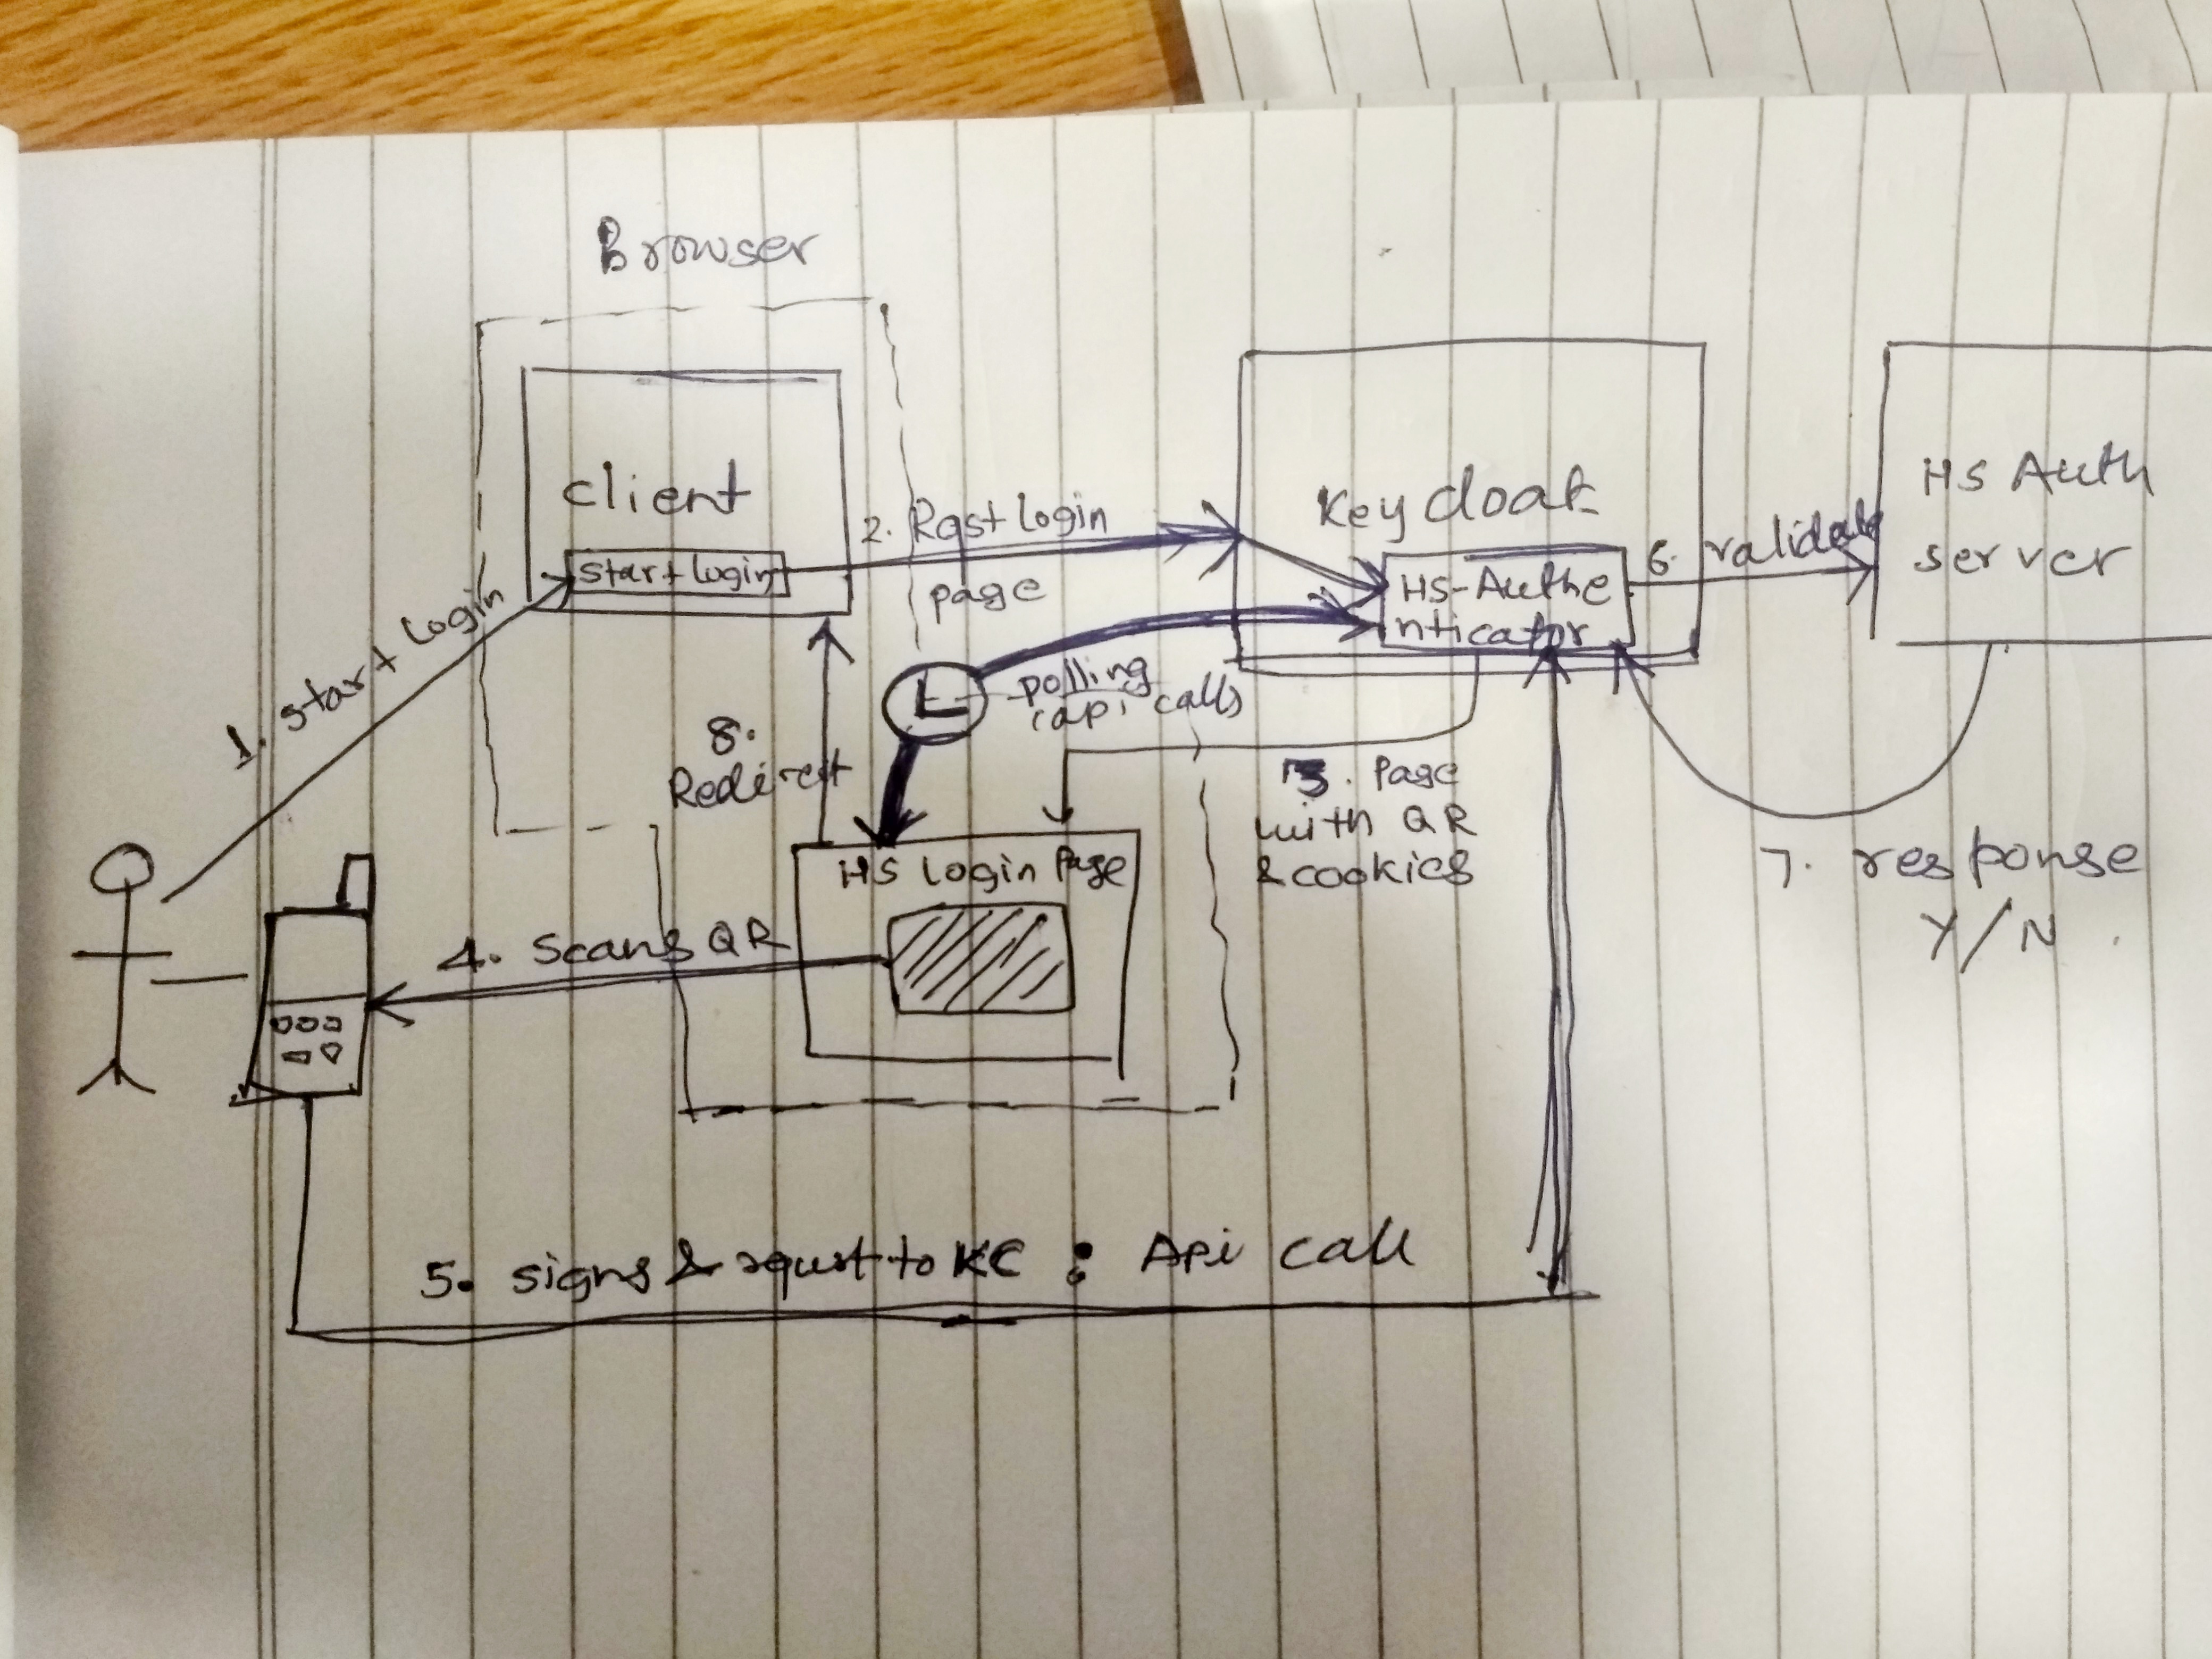 Browser
client
start login
1. start Login
2. Rqst login
page
Key cloak
HS-Authe
nticator
6. validate
HS Auth
server
polling
(api calls
8.
Redirect
3. Page
with QR
& cookies
7. response
Y/N
HS Login Page
4. Scans QR
5. signs & rqust to KC : Api call